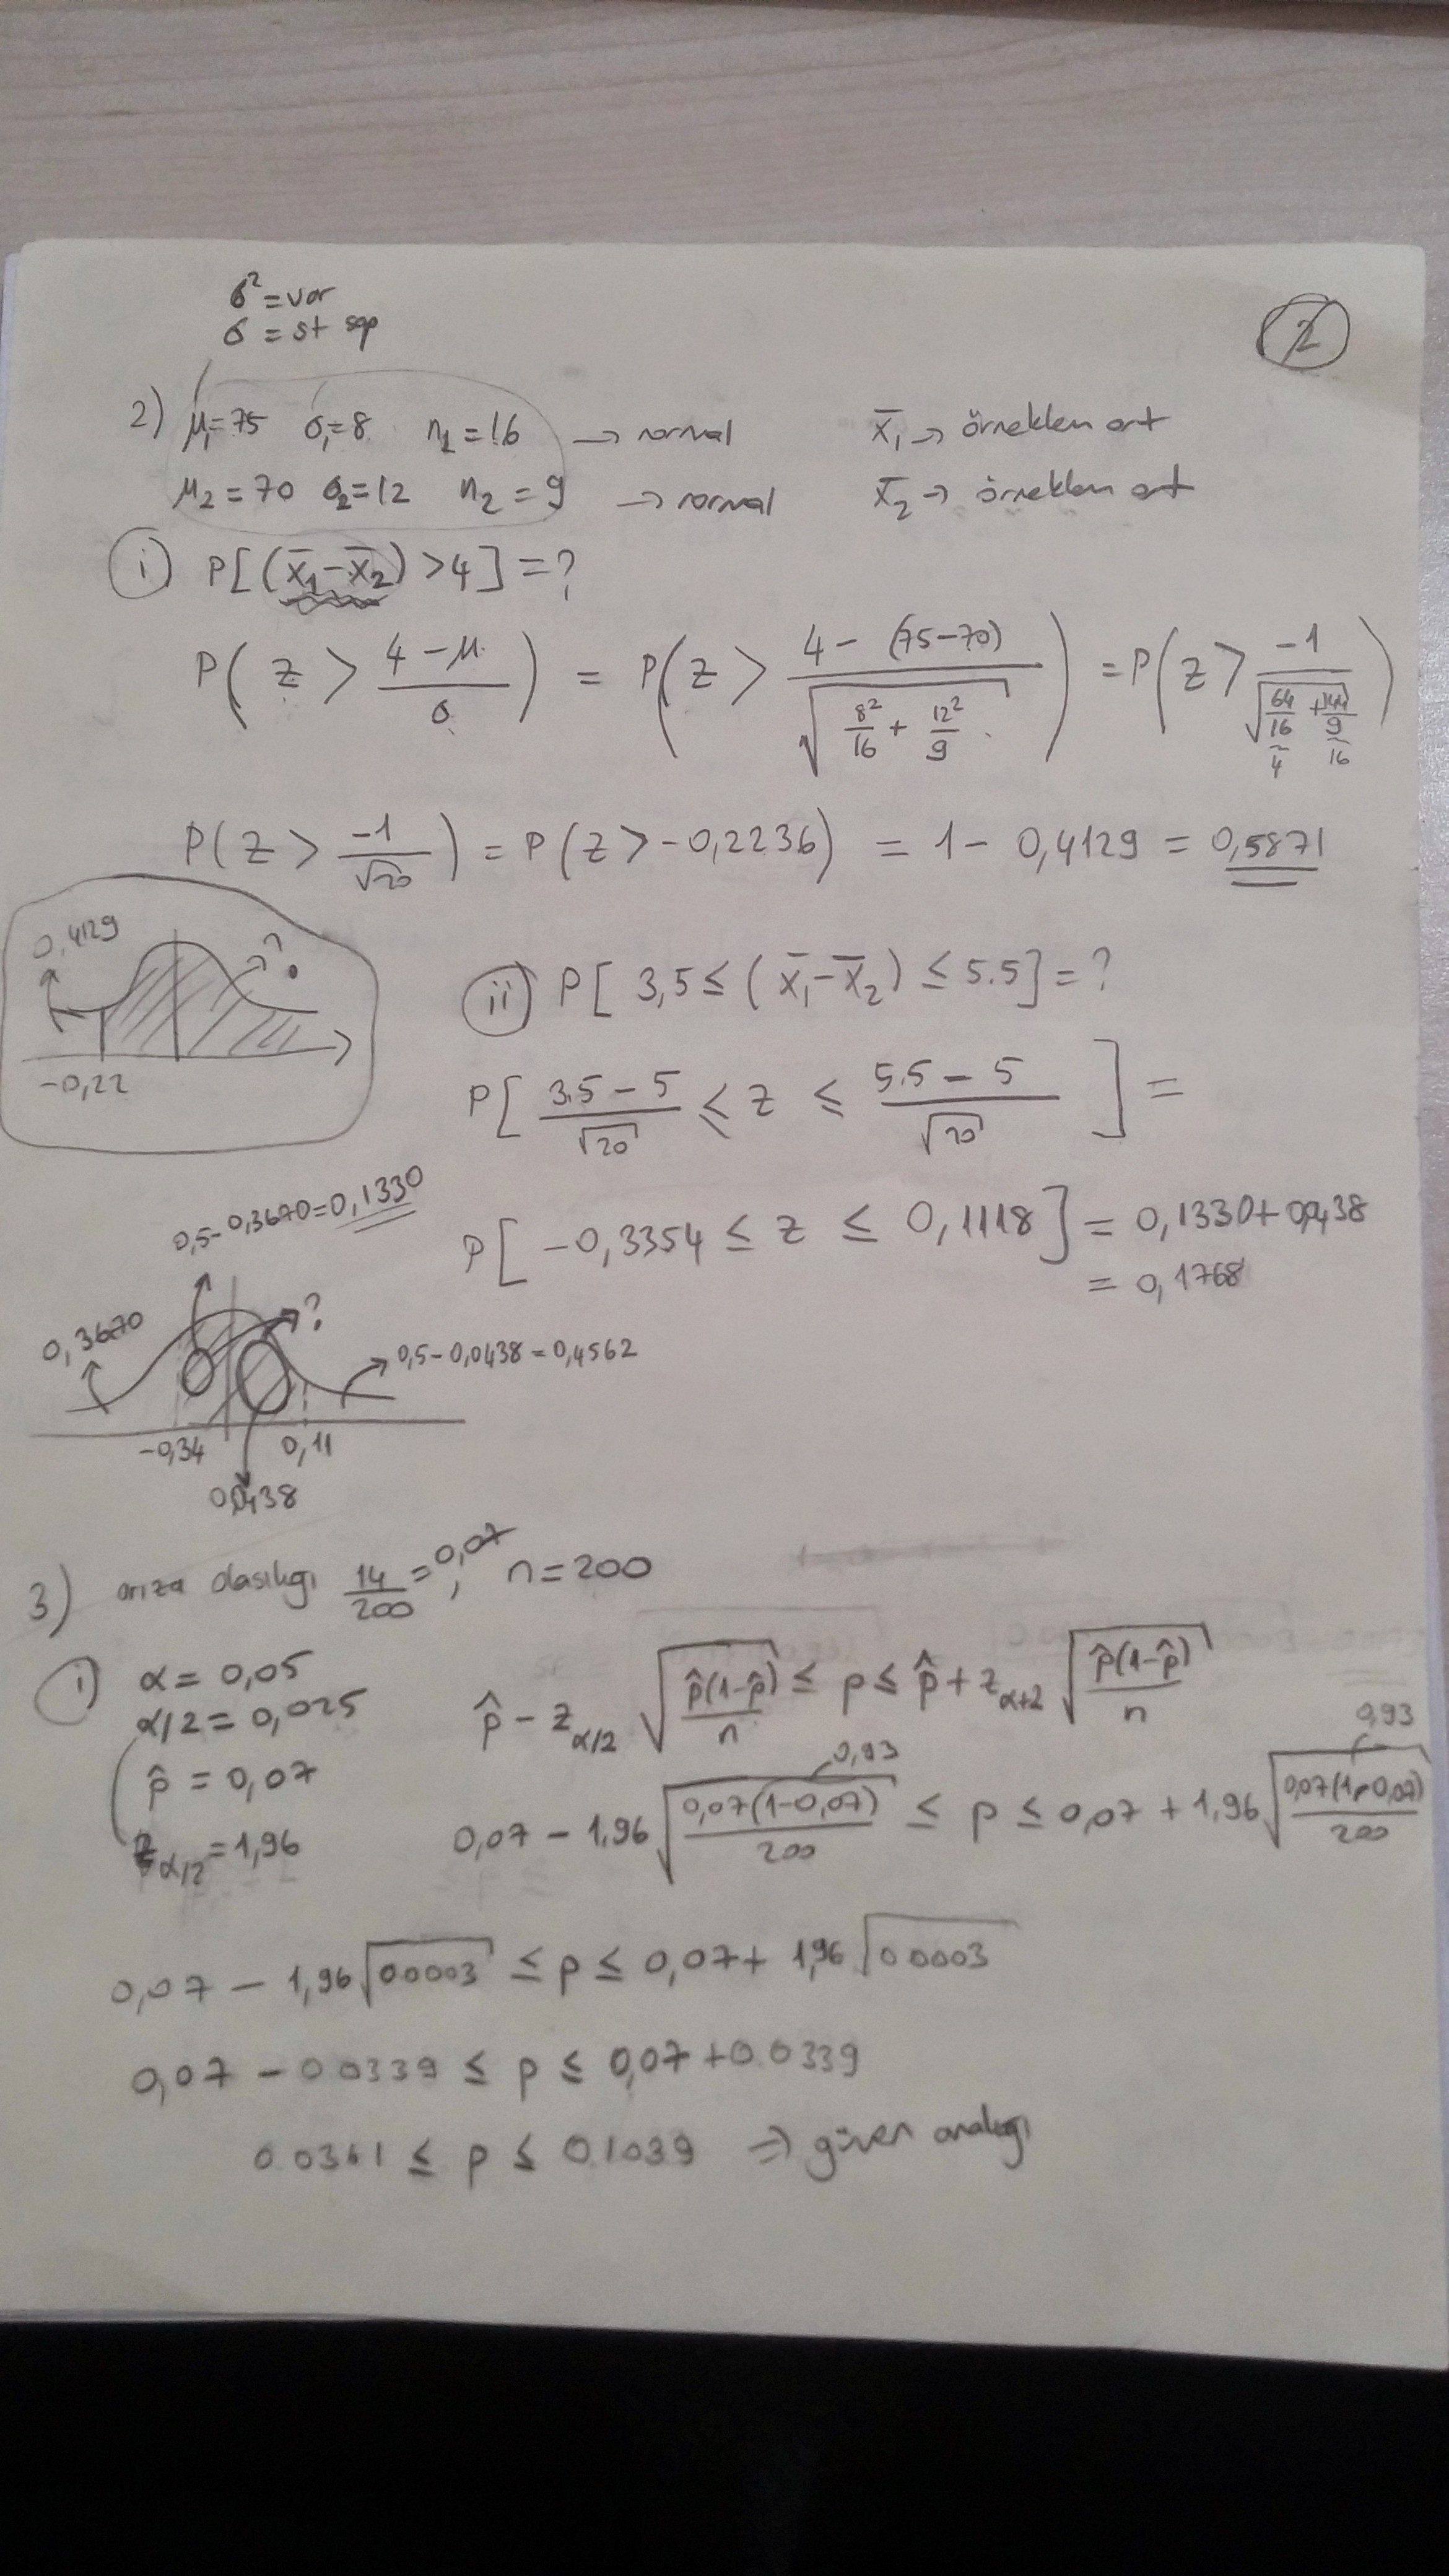 σ² = var
σ = st sap
2
2) μ₁=75 σ₁=8 n₁=16 → normal x̄₁ → örneklem ort
μ₂=70 σ₂=12 n₂=9 → normal x̄₂ → örneklem ort
i) P[(x̄₁-x̄₂)>4]=?
P(z > (4-μ)/σ) = P(z > (4-(75-70))/√(8²/16 + 12²/9)) = P(z > -1/√(64/16 + 144/9))
4 16
P(z > -1/√20) = P(z > -0,2236) = 1 - 0,4129 = 0,5871
0,4129
?
-0,22
ii) P[3,5 ≤ (x̄₁-x̄₂) ≤ 5.5] = ?
P[(3.5-5)/√20 ≤ z ≤ (5.5-5)/√20] =
P[-0,3354 ≤ z ≤ 0,1118] = 0,1330+0,0438
= 0,1768
0,5-0,3670=0,1330
0,3670
?
0,5-0,0438=0,4562
-0,34 0,11
0,0438
3) arıza olasılıgı 14/200 = 0,07, n=200
i) α = 0,05
α/2 = 0,025
p̂ = 0,07
z_α/2 = 1,96
p̂ - z_α/2 √(p̂(1-p̂)/n) ≤ p ≤ p̂ + z_α+2 √(p̂(1-p̂)/n)
0,93 0,93
0,07 - 1,96 √(0,07(1-0,07)/200) ≤ p ≤ 0,07 + 1,96 √(0,07(1-0,07)/200)
0,07 - 1,96 √0.0003 ≤ p ≤ 0,07 + 1,96 √0.0003
0,07 - 0.0339 ≤ p ≤ 0,07 + 0.0339
0.0361 ≤ p ≤ 0.1039 ⇒ güven aralıgı